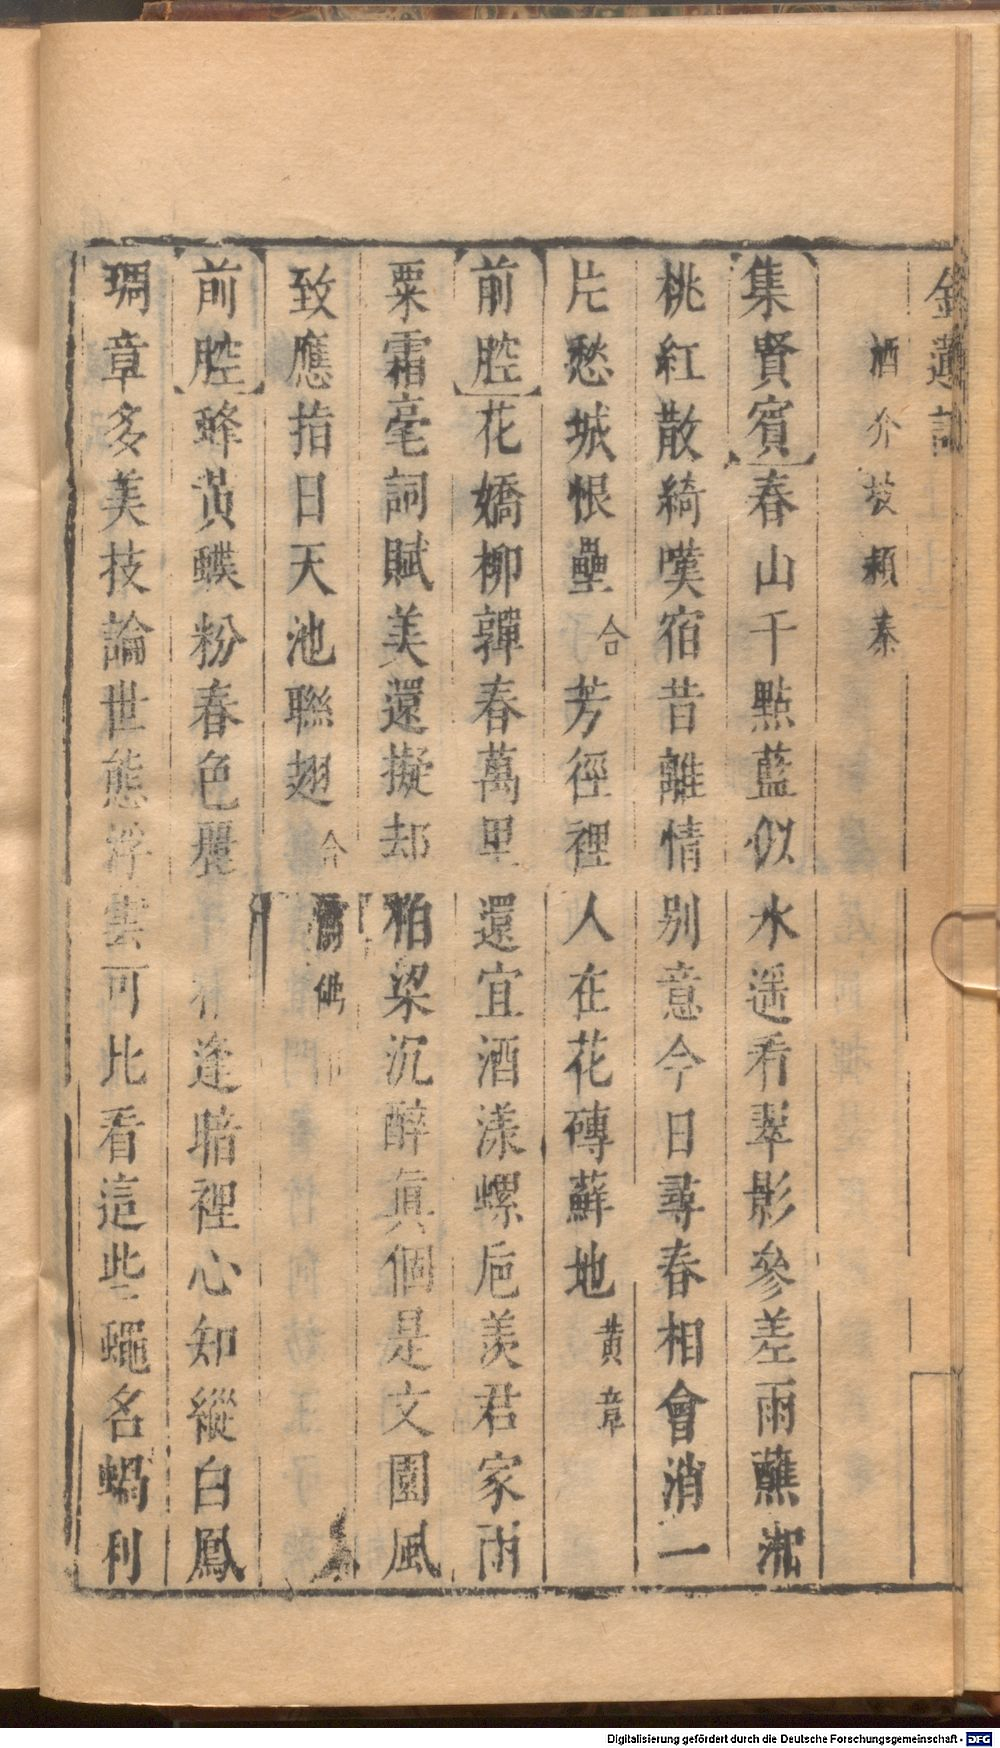 金蓮記
酒介坡穎秦
集賢賓春山千點藍似水遥看翠影參差雨蘸
桃紅散綺嘆宿昔離情别意今日尋春相會消一
片愁城恨壘合芳徑裡人在花磚蘚地黄章
前腔花嬌柳嚲春萬里還宜酒漾螺巵羡君家雨
粟霜毫詞賦美還擬却柏梁沉醉眞個是文園風
致應指日天池聯翅合佛
前腔蜂黄蝶粉春色麗逢暗裡心知縱白鳳
琱章多美技論世態浮雲可比看這些蠅名蝸利
Digitalisierung gefördert durch die Deutsche Forschungsgemeinschaft - DFG